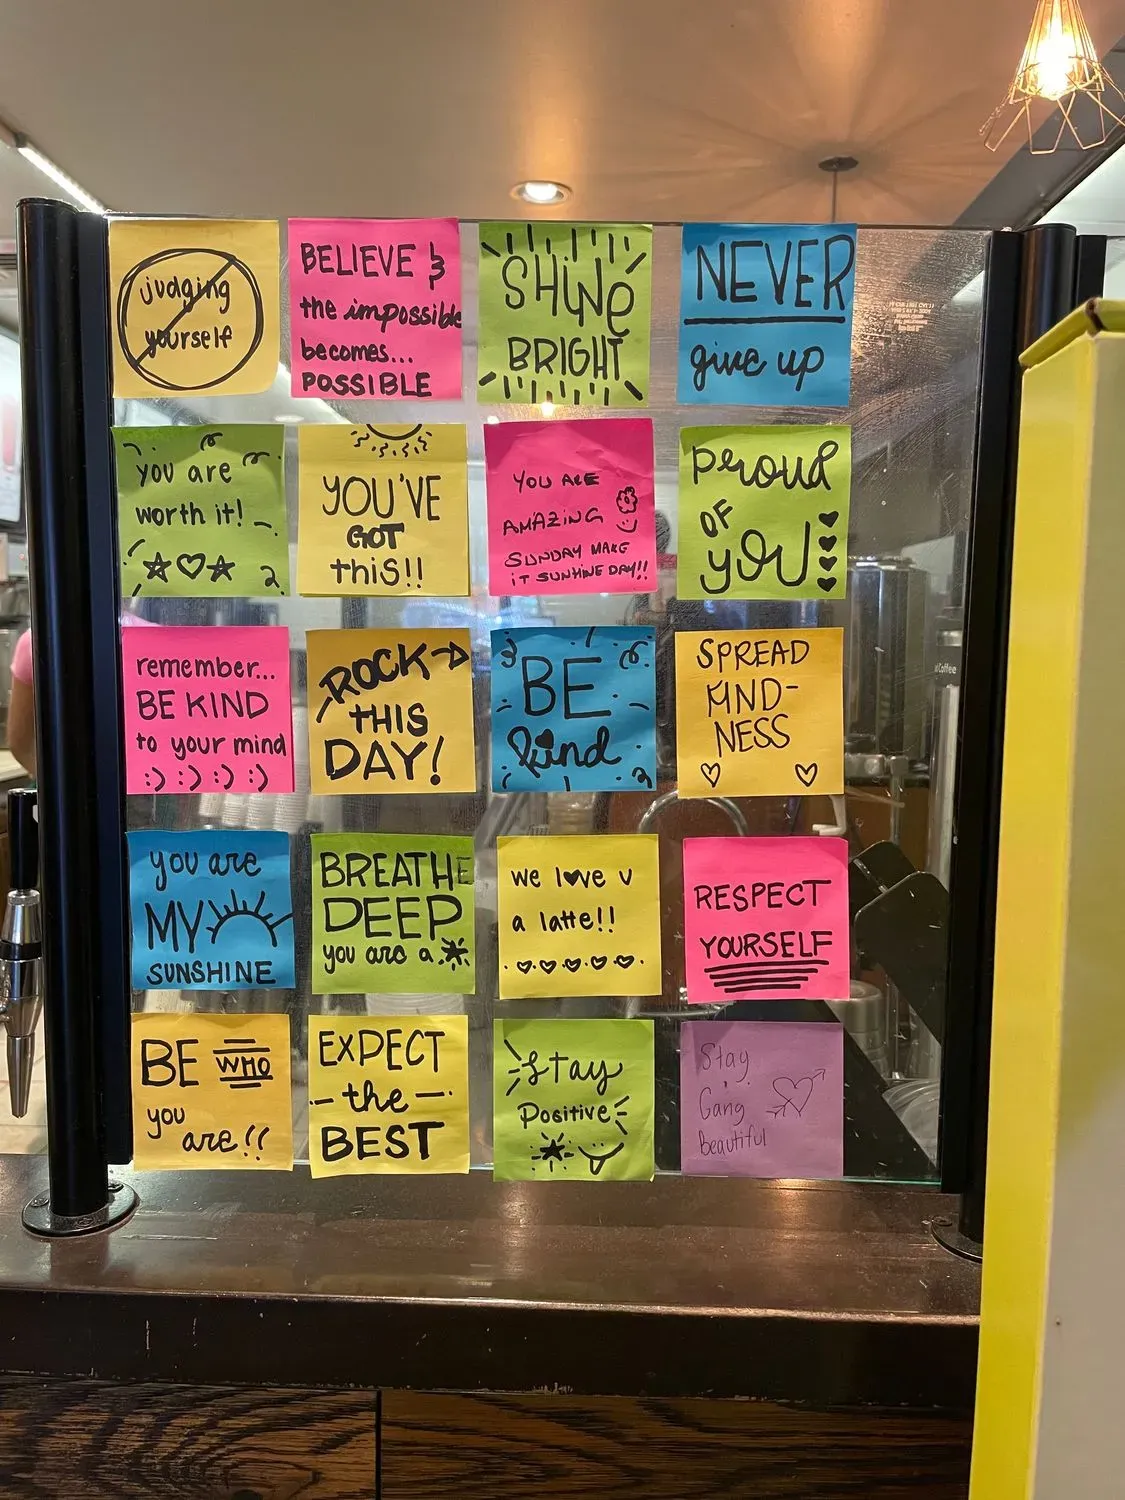 judging
yourself
BELIEVE &
the impossible
becomes...
POSSIBLE
SHiNe
BRIGHT
NEVER
give up
you are
worth it!
YOU'VE
GOT
thiS!!
YOU ARE
AMAZING
SUNDAY MAKE
iT SUNHINE DAY!!
Proud
OF
yOU
remember...
BE KIND
to your mind
:) :) :) :)
ROCK
THIS
DAY!
BE
kind
SPREAD
KIND-
NESS
you are
MY
SUNSHINE
BREATHE
DEEP
you are a
we love u
a latte!!
RESPECT
YOURSELF
BE WHO
you
are!!
EXPECT
- the -
BEST
Stay
Positive
Stay
Gang
Beautiful
Coffee